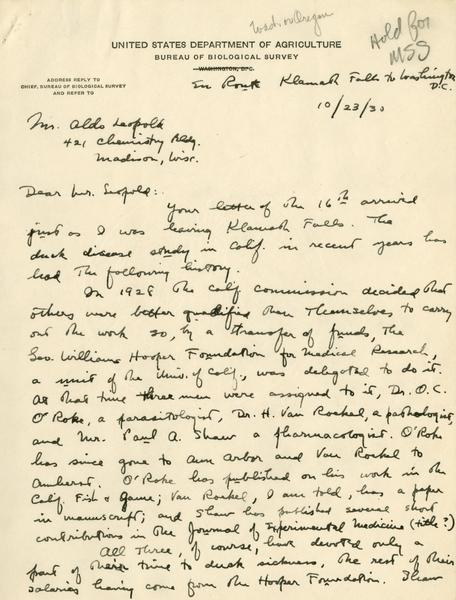 Wash. or Oregon
Hold for
MSS
UNITED STATES DEPARTMENT OF AGRICULTURE
BUREAU OF BIOLOGICAL SURVEY
WASHINGTON, D.C.
ADDRESS REPLY TO
CHIEF, BUREAU OF BIOLOGICAL SURVEY
AND REFER TO
En Route Klamath Falls to Washington
D.C.
10/23/30
Mr. Aldo Leopold
421 Chemistry Bldg.
Madison, Wisc.
Dear Mr. Leopold:
Your letter of the 16th arrived
just as I was leaving Klamath Falls. The
duck disease study in Calif. in recent years has
had the following history.
In 1928 the Calif commission decided that
others were better qualified than themselves to carry
out the work so, by a transfer of funds, the
Geo. Williams Hooper Foundation for Medical Research,
a unit of the Univ. of Calif., was delegated to do it.
At that time three men were assigned to it, Dr. O.C.
O'Roke, a parasitologist, Dr. H. Van Roekel, a pathologist,
and Mr. Paul A. Shaw a pharmacologist. O'Roke
has since gone to Ann Arbor and Van Roekel to
Amherst. O'Roke has published on his work in the
Calif. Fish & Game; Van Roekel, I am told, has a paper
in manuscript; and Shaw has published several short
contributions in the Journal of Experimental Medicine (title?)
All three, of course, have devoted only a
part of their time to duck sickness, the rest of their
salaries having come from the Hooper Foundation. Shaw